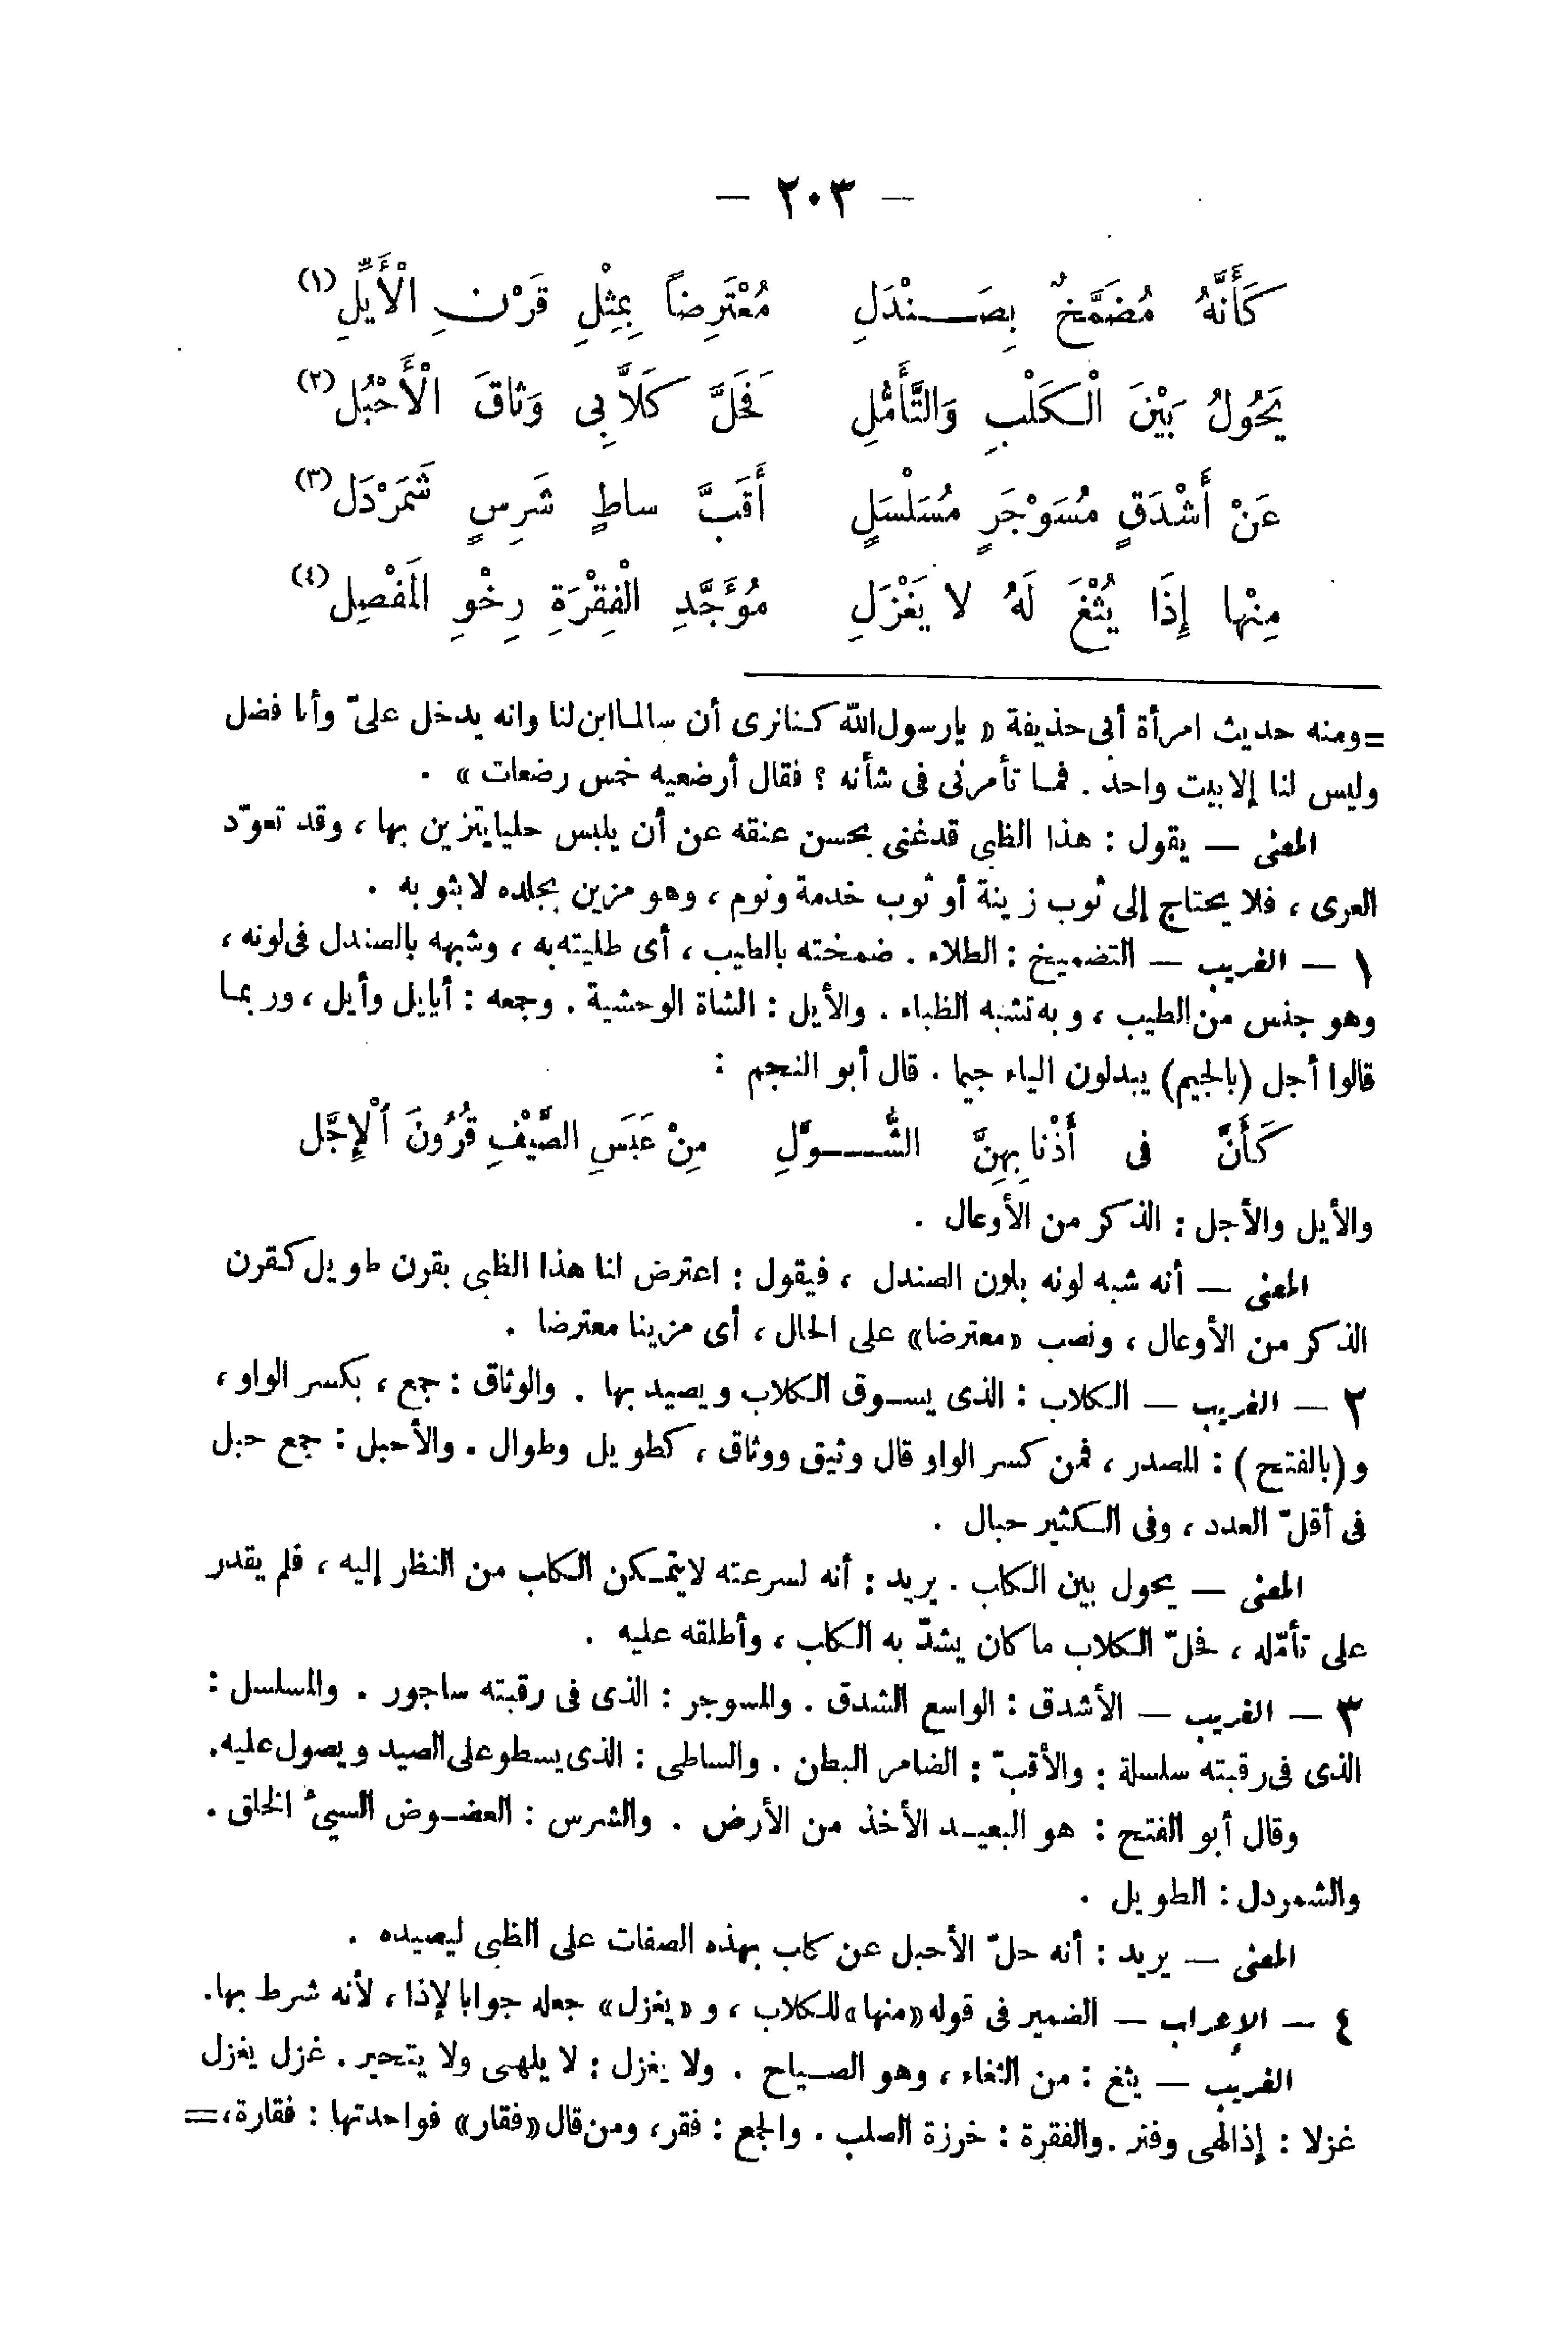 — ٢٠٣ —
كَأَنَّهُ مُضَمَّخٌ بِصَنْدَلِ مُعْتَرِضاً بِمِثْلِ قَرْنِ الْأَيِّلِ (١)
يَحُولُ بَيْنَ الْكَلْبِ وَالتَّأَمُّلِ فَحَلَّ كَلَّابِى وَثاقَ الْأَحْبُلِ (٢)
عَنْ أَشْدَقٍ مُسَوْجَرٍ مُسَلْسَلٍ أَقَبَّ ساطٍ شَرِسٍ شَمَرْدَلِ (٣)
مِنْها إِذَا يُثْغَ لَهُ لا يَغْزَلِ مُؤَجَّدِ الْفِقْرَةِ رِخْوِ المَفْصِلِ (٤)
=ومنه حديث امرأة أبى حذيفة « يارسول الله كنانرى أن سالما ابن لنا وانه يدخل علىّ وأنا فضل
وليس لنا إلا بيت واحد . فما تأمرنى فى شأنه ؟ فقال أرضعيه خمس رضعات » .
المعنى — يقول : هذا الظبى قد غنى بحسن عنقه عن أن يلبس حليا يتزين بها ، وقد تعوّد
العرى ، فلا يحتاج إلى ثوب زينة أو ثوب خدمة ونوم ، وهو مزين بجلده لا بثوبه .
١ — الغريب — التضميخ : الطلاء . ضمخته بالطيب ، أى طليته به ، وشبهه بالصندل فى لونه ،
وهو جنس من الطيب ، وبه تشبه الظباء . والأيل : الشاة الوحشية . وجمعه : أيايل وأيل ، وربما
قالوا أجل (بالجيم) يبدلون الياء جيما . قال أبو النجم :
كَأَنَّ فى أَذْنابِهِنَّ الشُّوَّلِ مِنْ عَبَسِ الصَّيْفِ قُرُونَ الْإِجَّلِ
والأيل والأجل : الذكر من الأوعال .
المعنى — أنه شبه لونه بلون الصندل ، فيقول : اعترض لنا هذا الظبى بقرن طويل كقرن
الذكر من الأوعال ، ونصب «معترضا» على الحال ، أى مزينا معترضا .
٢ — الغريب — الكلاب : الذى يسوق الكلاب ويصيد بها . والوثاق : جمع ، بكسر الواو ،
و(بالفتح) : المصدر ، فمن كسر الواو قال وثيق ووثاق ، كطويل وطوال . والأحبل : جمع حبل
فى أقلّ العدد ، وفى الكثير حبال .
المعنى — يحول بين الكلب . يريد : أنه لسرعته لا يتمكن الكلب من النظر إليه ، فلم يقدر
على تأمّله ، فحلّ الكلاب ما كان يشدّ به الكلب ، وأطلقه عليه .
٣ — الغريب — الأشدق : الواسع الشدق . والمسوجر : الذى فى رقبته ساجور . والمسلسل :
الذى فى رقبته سلسلة : والأقبّ : الضامر البطن . والساطى : الذى يسطو على الصيد ويصول عليه.
وقال أبو الفتح : هو البعيد الأخذ من الأرض . والشرس : العضوض السيئ الخلق .
والشمردل : الطويل .
المعنى — يريد : أنه حلّ الأحبل عن كلب بهذه الصفات على الظبى ليصيده .
٤ — الإعراب — الضمير فى قوله «منها» للكلاب ، و «يغزل» جعله جوابا لإذا ، لأنه شرط بها.
الغريب — يثغ : من الثغاء ، وهو الصياح . ولا يغزل : لا يلهى ولا يتحير . غزل يغزل
غزلا : إذا لهى وفتر . والفقرة : خرزة الصلب . والجمع : فقر، ومن قال «فقار» فواحدتها : فقارة،=